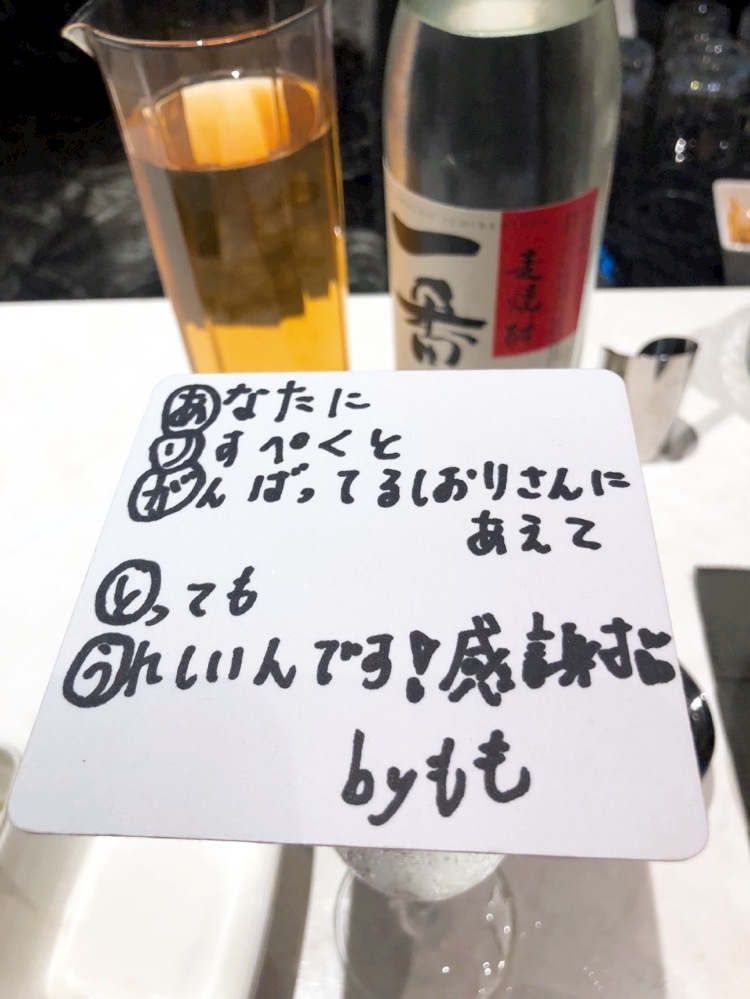 一番
麦焼酎
あなたに
りすぺくと
がんばってるしおりさんに
あえて
とっても
うれしいんです!感謝す
byもも